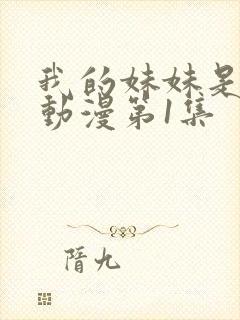 我的妹妹是
動漫第1集
隋九